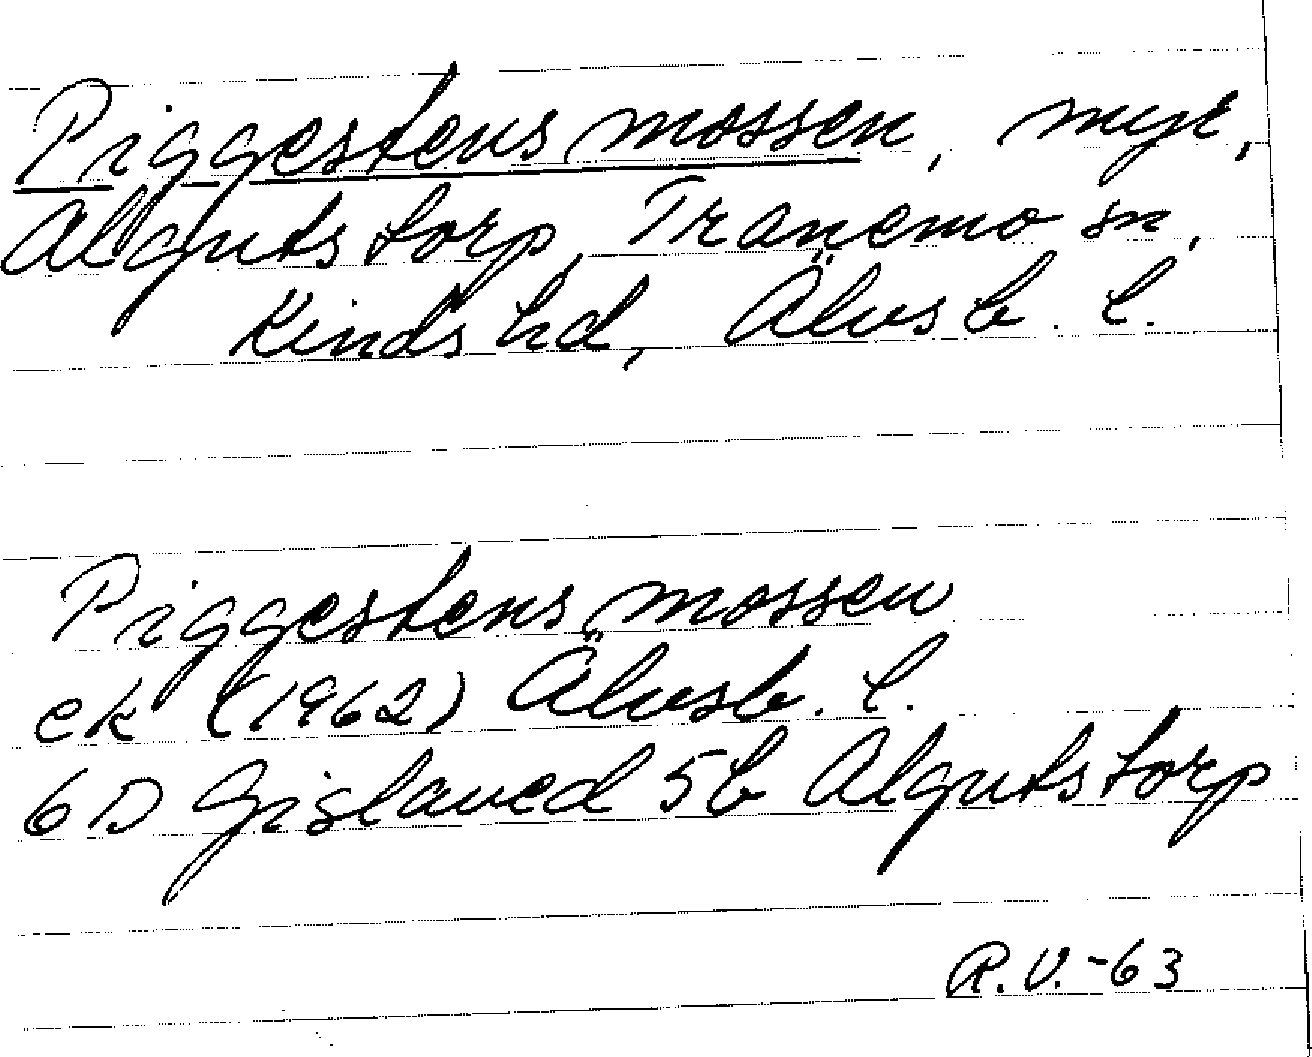 Piggestensmossen, myr,
Algutstorp, Tranemo sn,
Kinds hd, Älvsb. l.
Piggestensmossen
ek (1962) Älvsb. l.
6D Gislaved 5b Algutstorp
R.V.-63